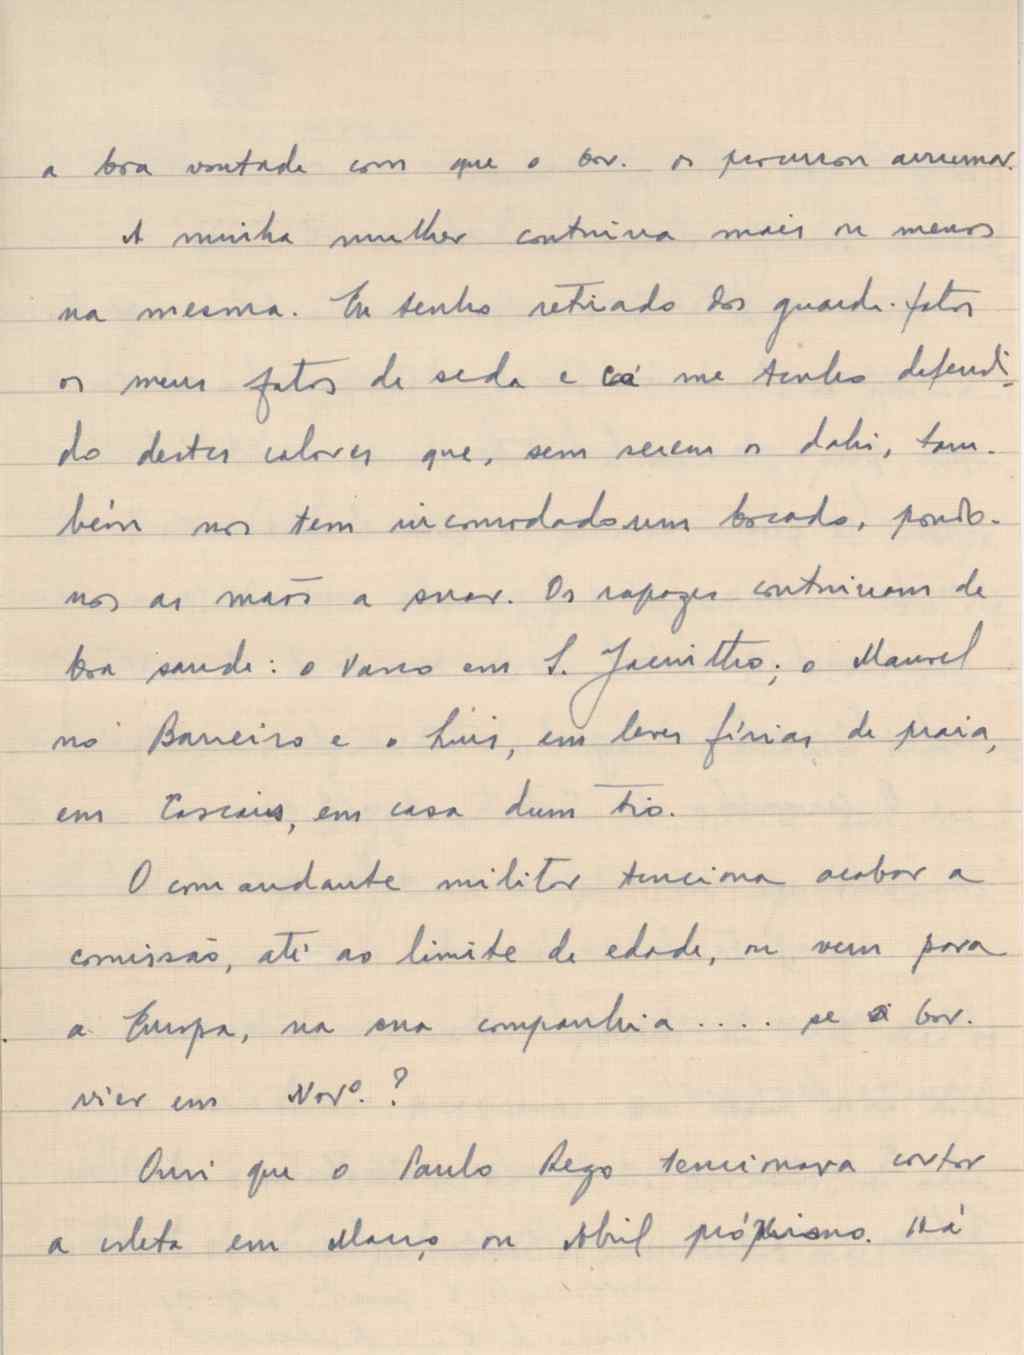 a boa vontade com que o Gov. os procurou arrumar.
A minha mulher continua mais ou menos
na mesma. Eu tenho retirado dos guarda-fatos
os meus fatos de seda e cá me tenho defendi-
do destes calores que, sem serem os dahi, tam-
bém nos tem incomodado um bocado, pondo-
nos as mãos a suar. Os rapazes continuam de
boa saude: o Vasco em S. Jacintho; o Manuel
no Barreiro e o Luís, em leves férias de praia,
em Cascais, em casa dum tio.
O comandante militar tenciona acabar a
comissão, até ao limite de edade, ou vem para
a Europa, na sua companhia .... se o Gov.
vier em Novº. ?
Ouvi que o Paulo Rego tencionava cortar
a coleta em Março ou Abril próximo. Há